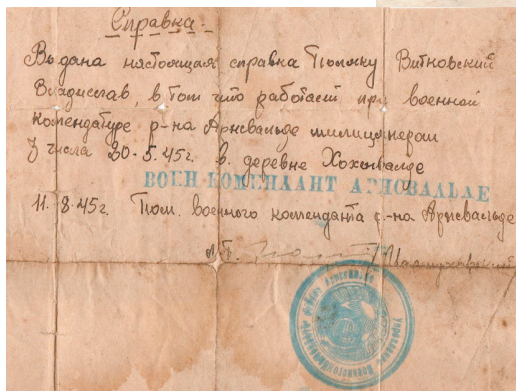 Справка.
Выдана настоящая справка Поляку Витновский
Владислав, в том что работает при военной
комендатуре р-на Арнсвальде милиционером
З числа 20-5.45г. в деревне
ВОЕН-КОМЕНДАНТ АРНСВАЛЬДЕ
11.8.45г. Пом. военного коменданта р-на Арнсвальде